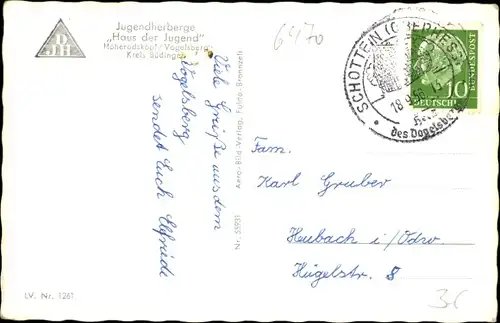 DJH
Jugendherberge
„Haus der Jugend"
Hoherodskopf/Vogelsberg
Kreis Büdingen
Viele Grüße aus dem
Vogelsberg
sendet Euch Elfriede
Aero-Bild-Verlag, Fulda-Bronnzell
Nr. 55931
LV. Nr. 1261
6470
SCHOTTEN (OBERHESS)
18.9.56
des Vogelsberg
DEUTSCHE BUNDESPOST
10
Fam.
Karl Gruber
Heubach i/Odw
Hügelstr. 8